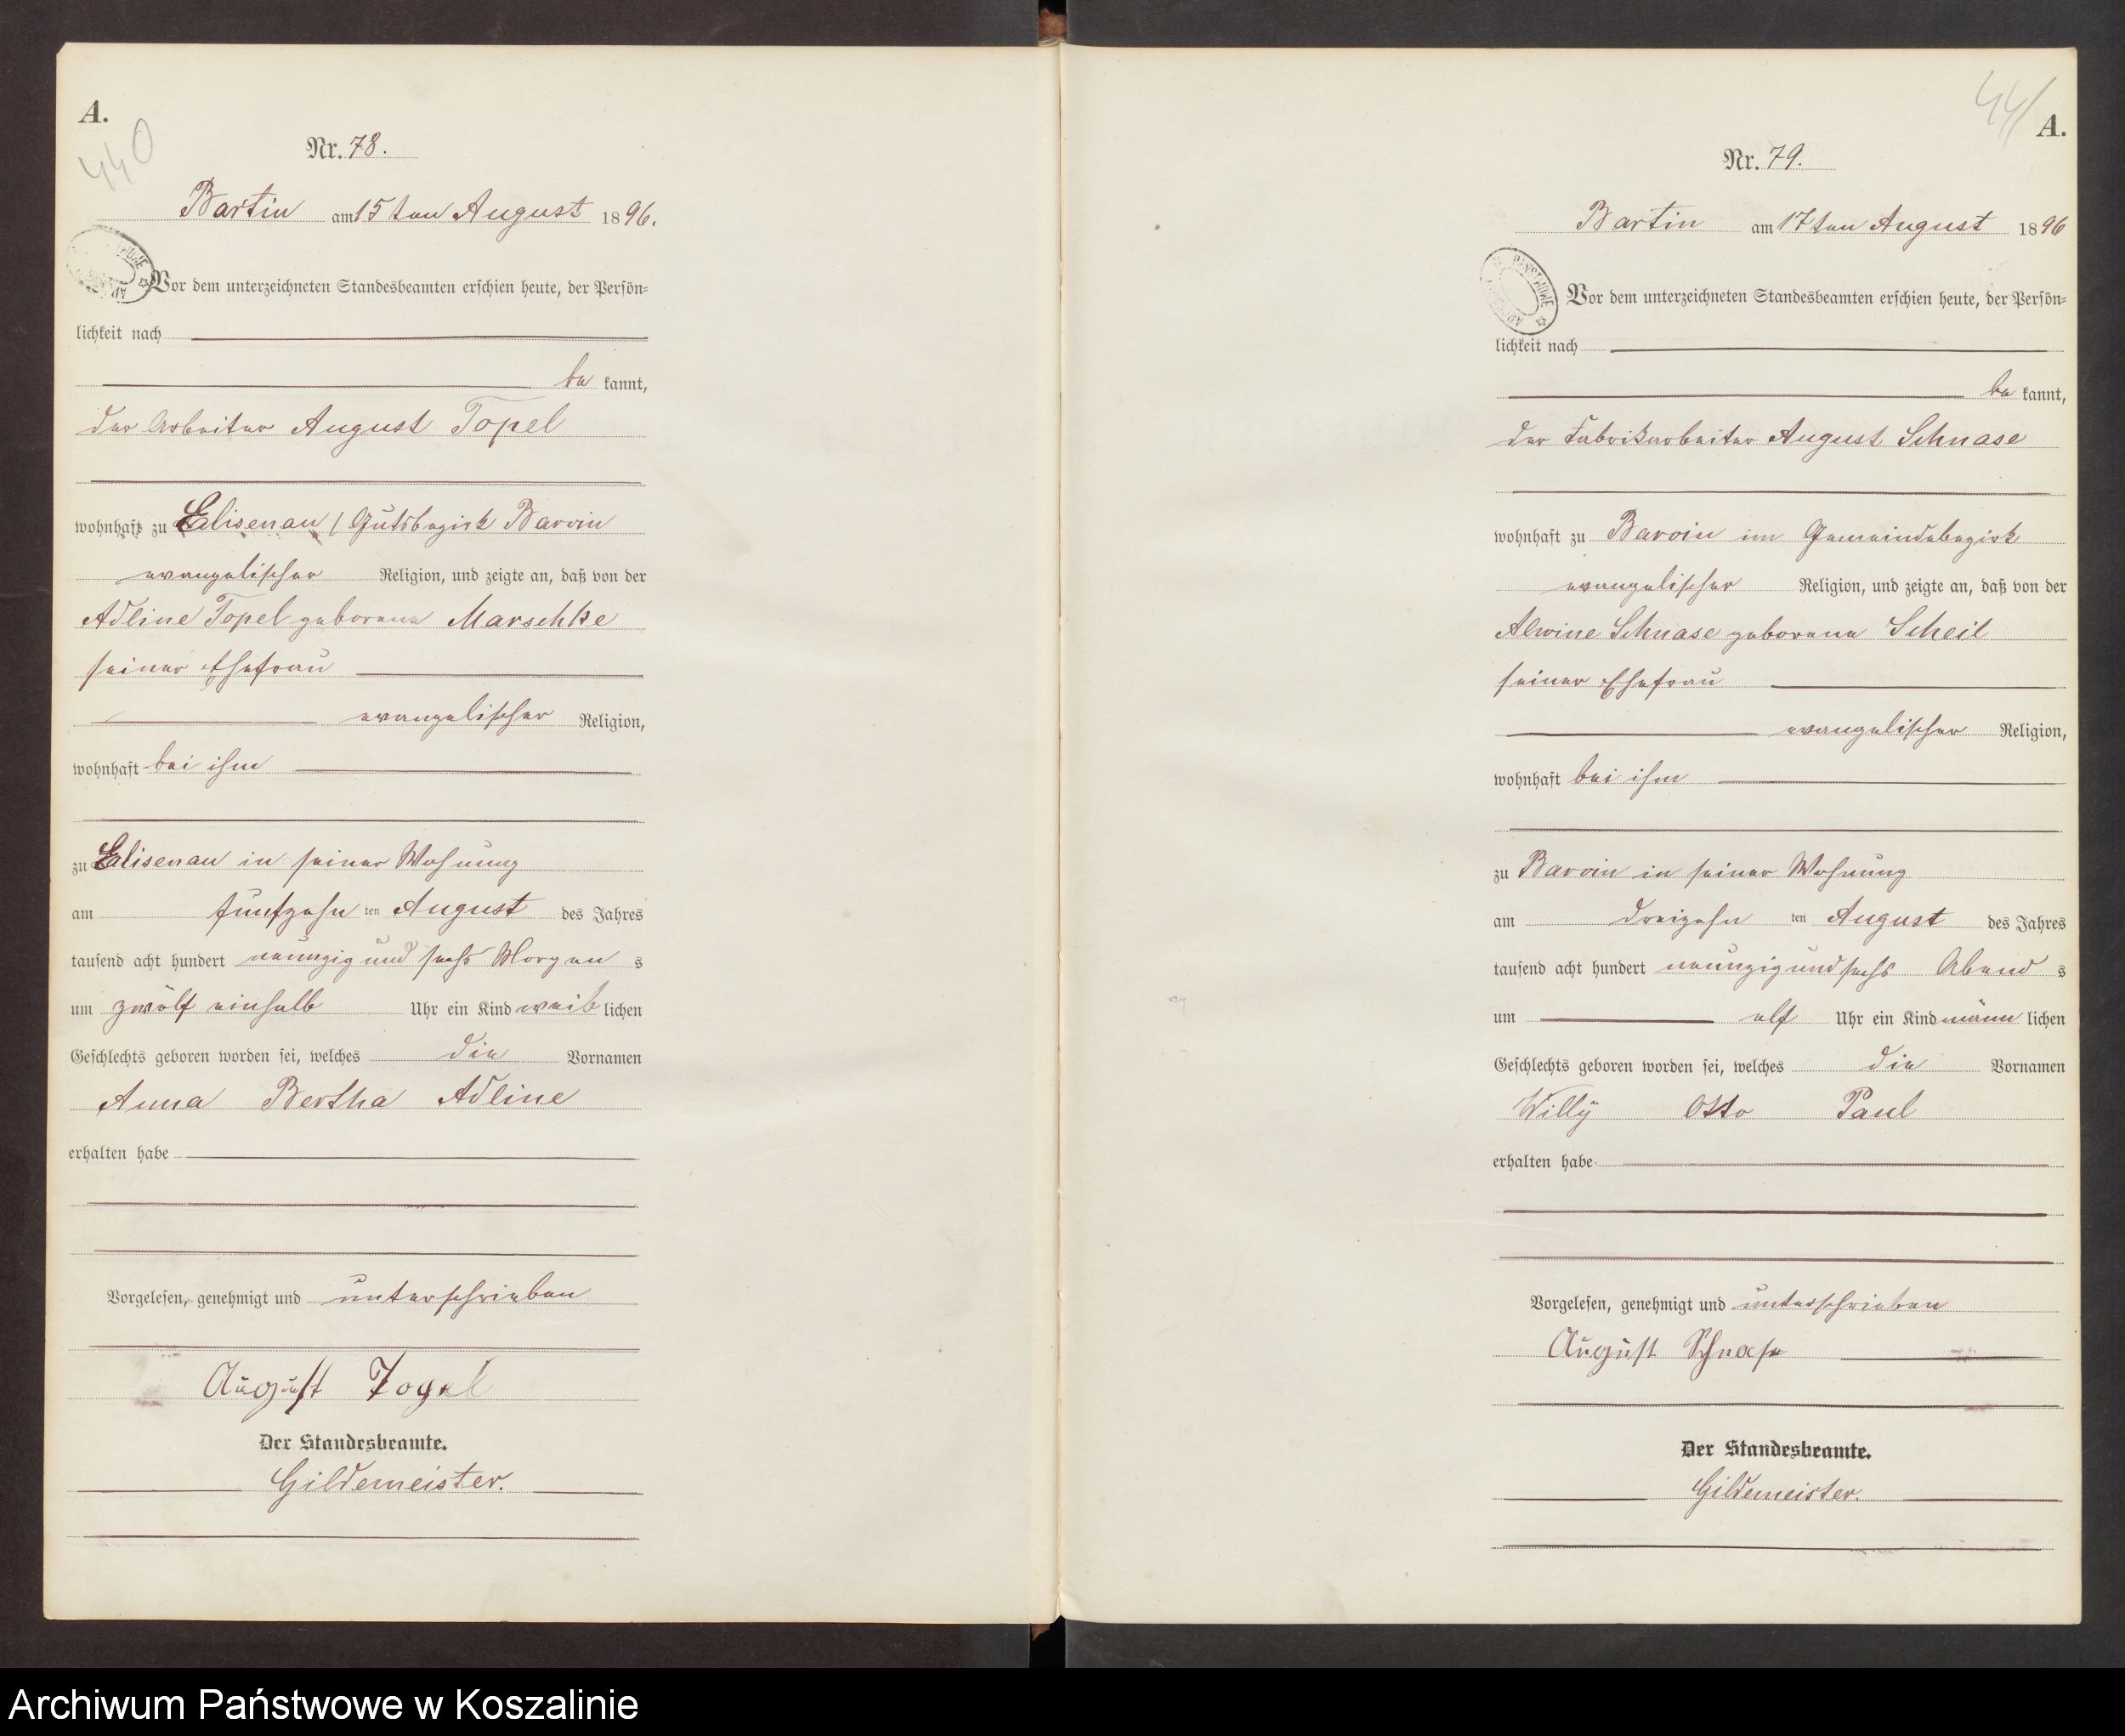 A.
440
Nr. 78.
Bartin am 15 ten August 1896.
Vor dem unterzeichneten Standesbeamten erschien heute, der Persön-
lichkeit nach
be kannt,
der Arbeiter August Topel
wohnhaft zu Elisenau / Gutsbezirk Barvin
evangelischer Religion, und zeigte an, daß von der
Adline Topel geborene Marschke
seiner Ehefrau
evangelischer Religion,
wohnhaft bei ihm
zu Elisenau in seiner Wohnung
am fünfzehn ten August des Jahres
tausend acht hundert neunzig und sechs Morgen s
um zwölf einhalb Uhr ein Kind weib lichen
Geschlechts geboren worden sei, welches die Vornamen
Anna Bertha Adline
erhalten habe
Vorgelesen, genehmigt und unterschrieben
August Topel
Der Standesbeamte.
Gildemeister.
441
A.
Nr. 79.
Bartin am 17 ten August 1896
PAŃSTWOWE
Vor dem unterzeichneten Standesbeamten erschien heute, der Persön-
lichkeit nach
be kannt,
der Fabrikarbeiter August Schnase
wohnhaft zu Barvin im Gemeindebezirk
evangelischer Religion, und zeigte an, daß von der
Alwine Schnase geborene Scheil
seiner Ehefrau
evangelischer Religion,
wohnhaft bei ihm
zu Barvin in seiner Wohnung
am dreizehn ten August des Jahres
tausend acht hundert neunzig und sechs Abend s
um elf Uhr ein Kind männ lichen
Geschlechts geboren worden sei, welches die Vornamen
Willy Otto Paul
erhalten habe
Vorgelesen, genehmigt und unterschrieben
August Schnase
Der Standesbeamte.
Gildemeister.
Archiwum Państwowe w Koszalinie